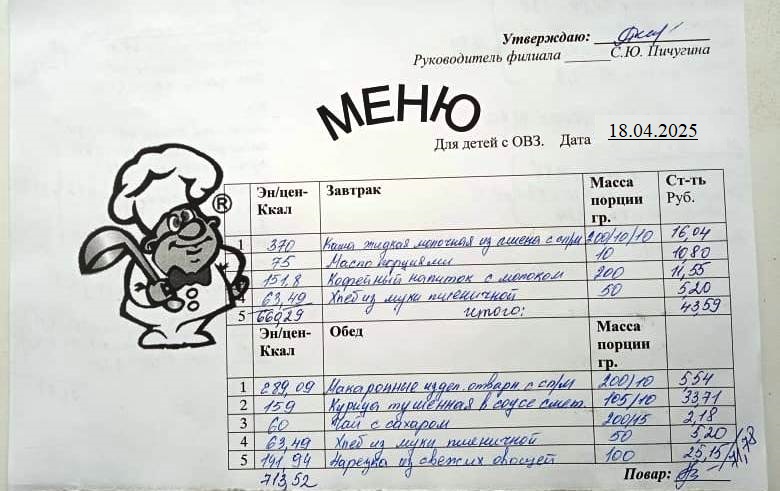 Утверждаю:
Руководитель филиала С.Ю. Пичугина
МЕНЮ
Для детей с ОВЗ. Дата 18.04.2025
Эн/цен-Ккал Завтрак Масса порции гр. Ст-ть Руб.
1 370 Каша жидкая молочная из пшена с сп/м 200/10/10 16,04
75 Масло порциями 10 10,80
151,8 Кофейный напиток с молоком 200 11,55
4 63,49 Хлеб из муки пшеничной 50 5,20
5 660,29 итого: 43,59
Эн/цен-Ккал Обед Масса порции гр.
1 289,09 Макаронные издел. отварн с сп/м 200/10 5,54
2 159 Курица тушенная в соусе смет. 105/10 33,71
3 60 Чай с сахаром 200/15 2,18
4 63,49 Хлеб из муки пшеничной 50 5,20
5 141,94 Нарезка из свежих овощей 100 25,15
713,52 Повар: 71,78